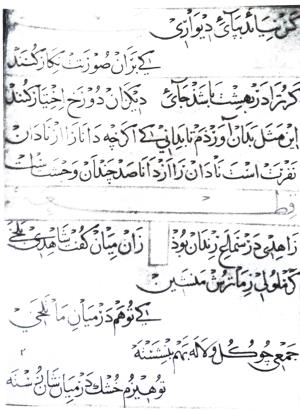 کس نیاید بپائ دیواری
کی بران صورت نکار کنند
کر ترا در بهشت باشد جائ دیکران دوزخ اختیار کنند
این مثل بدان آوردم تا بدانی کی دانا را از نادان
نفرت است نادان را از دانا صد چندان وحشت است
قطعه
زاهدی در سماع رندان بود زان میان کفت شاهدی بلخی
کر ملولی زما ترش منشین
کی تو هم در میان ما تلخی
جمعی چو کل و لاله بهم پیوسته
تو هیزم خشک در میان شان رسته